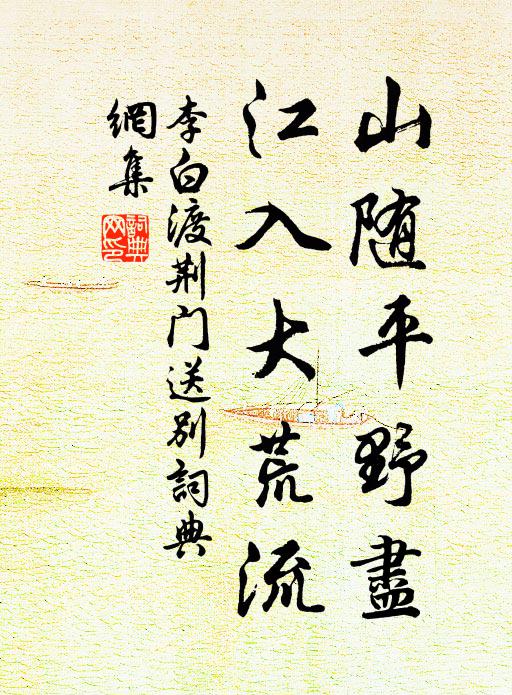 山随平野盡
江入大荒流
李白渡荆门送别詞典
網集
詞典
网印